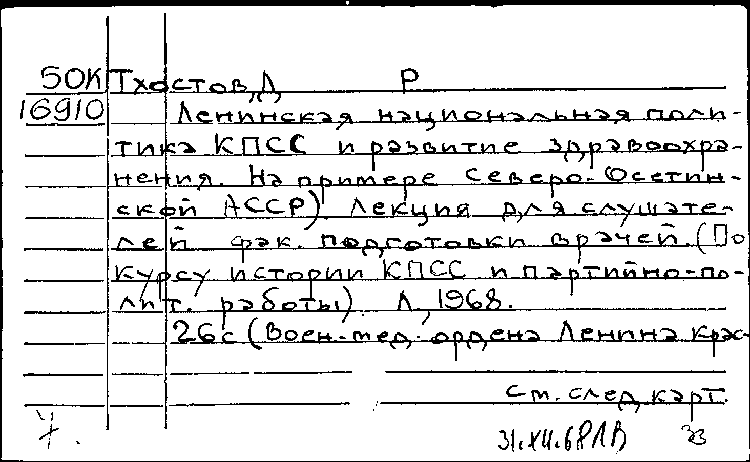 50К Тхостов, Д. Р
16910 Ленинская национальная поли-
тика КПСС и развитие здравоохра-
нения. На примере Северо-Осетин-
ской АССР). Лекция для слушате-
лей фак. подготовки врачей. (По
курсу истории КПСС и партийно-по-
лит. работы). Л, 1968.
26с (Воен.-мед. ордена Ленина Крас-
См. след. карт.
31.XII.68ЛВ